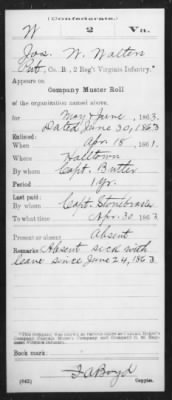 (Confederate.)
W 2 Va.
Jos. W. Walton
Pvt, Co. B, 2 Reg't Virginia Infantry.*
Appears on
Company Muster Roll
of the organization named above,
for May + June, 1863.
Dated June 30, 1863
Enlisted:
When Apr. 18, 1861.
Where Halltown
By whom Capt. Butler
Period 1 yr.
Last paid:
By whom Capt. Stonebraker
To what time Apr. 30, 1863
Present or absent Absent
Remarks: Absent sick with
leave since June 24, 1863
Book mark:
(642) Copyist.